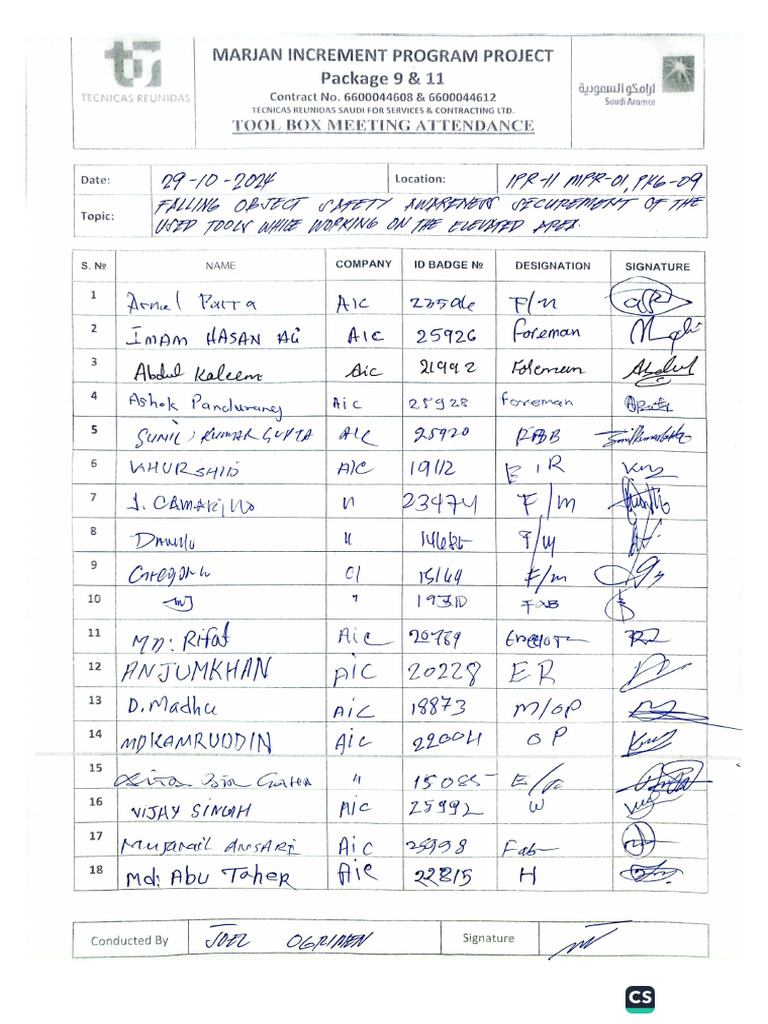 TECNICAS REUNIDAS
MARJAN INCREMENT PROGRAM PROJECT
Package 9 & 11
Contract No. 6600044608 & 6600044612
TECNICAS REUNIDAS SAUDI FOR SERVICES & CONTRACTING LTD.
TOOL BOX MEETING ATTENDANCE
ارامكو السعودية
Saudi Aramco
Date: 29-10-2024 Location: IPR-11 MPR-01, PKG-09
Topic: FALLING OBJECT SAFETY AWARENESS SECUREMENT OF THE
USED TOOLS WHILE WORKING ON THE ELEVATED AREA.
S. Nº NAME COMPANY ID BADGE Nº DESIGNATION SIGNATURE
1 AIC F/M
2 IMAM HASAN Ali AIC 25926 foreman
3 Abdul Kaleem Aic 21992 Foreman Abdul
4 Ashok Pandurang Aic 25928 foreman
5 SUNIL KUMAR GUPTA AIC 25920
6 KHURSHID AIC 19112
7 J. CAMARINO 23474 F/m
8 F/m
9 15169 F/m
10 " 19310 FAB
11 MD: Rifat Aic 20789
12 ANJUMKHAN AIC 20228 ER
13 D.Madhu AIC 18873 M/OP
14 MDKAMRUDDIN Aic 22004 OP
15 " 15085
16 VIJAY SINGH AIC 25992 W
17 ANSARI Aic 25998 Fab
18 Md: Abu Taher Aic 22815 H
Conducted By JOEL OGRIMEN Signature
CS